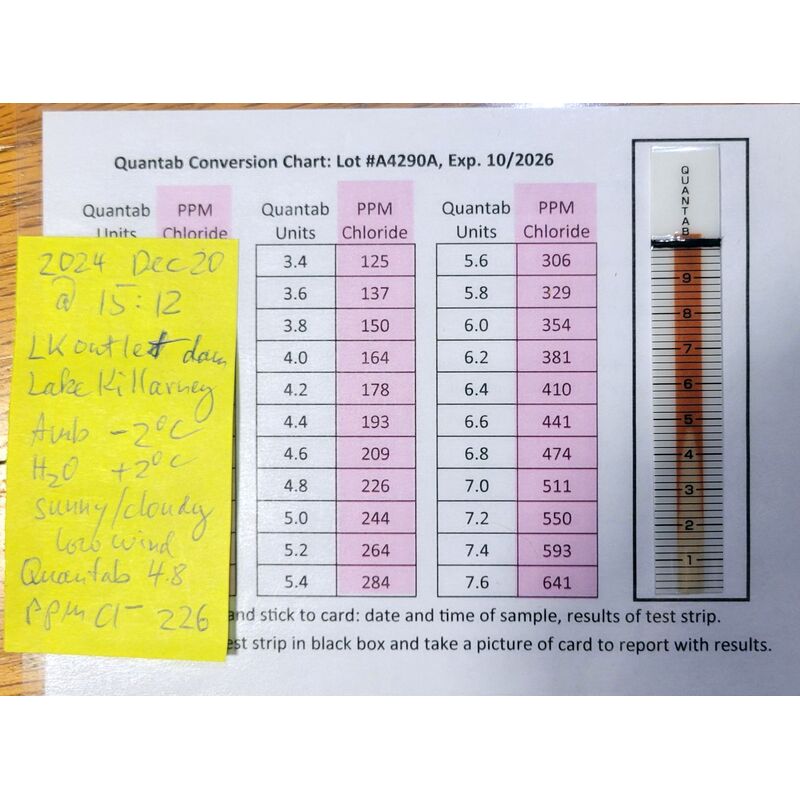 Quantab Conversion Chart: Lot #A4290A, Exp. 10/2026
Quantab Units PPM Chloride
Quantab Units PPM Chloride
3.4 125
3.6 137
3.8 150
4.0 164
4.2 178
4.4 193
4.6 209
4.8 226
5.0 244
5.2 264
5.4 284
Quantab Units PPM Chloride
5.6 306
5.8 329
6.0 354
6.2 381
6.4 410
6.6 441
6.8 474
7.0 511
7.2 550
7.4 593
7.6 641
and stick to card: date and time of sample, results of test strip.
est strip in black box and take a picture of card to report with results.
2024 Dec 20
@ 15:12
LK outlet dam
Lake Killarney
Amb -2°C
H2O +2°C
sunny/cloudy
low wind
Quantab 4.8
PPM Cl- 226
QUANTAB
9
8
7
6
5
4
3
2
1